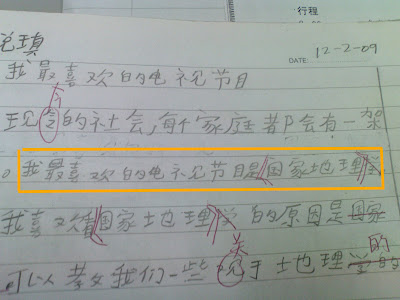 行程
DATE: 12-2-09
我最喜欢的电视节目
今
现的社会,每个家庭都会有一架
。我最喜欢的电视节目是《国家地理》
我喜欢看《国家地理》的原因是国家
关 的
可以教我们一些于地理学的